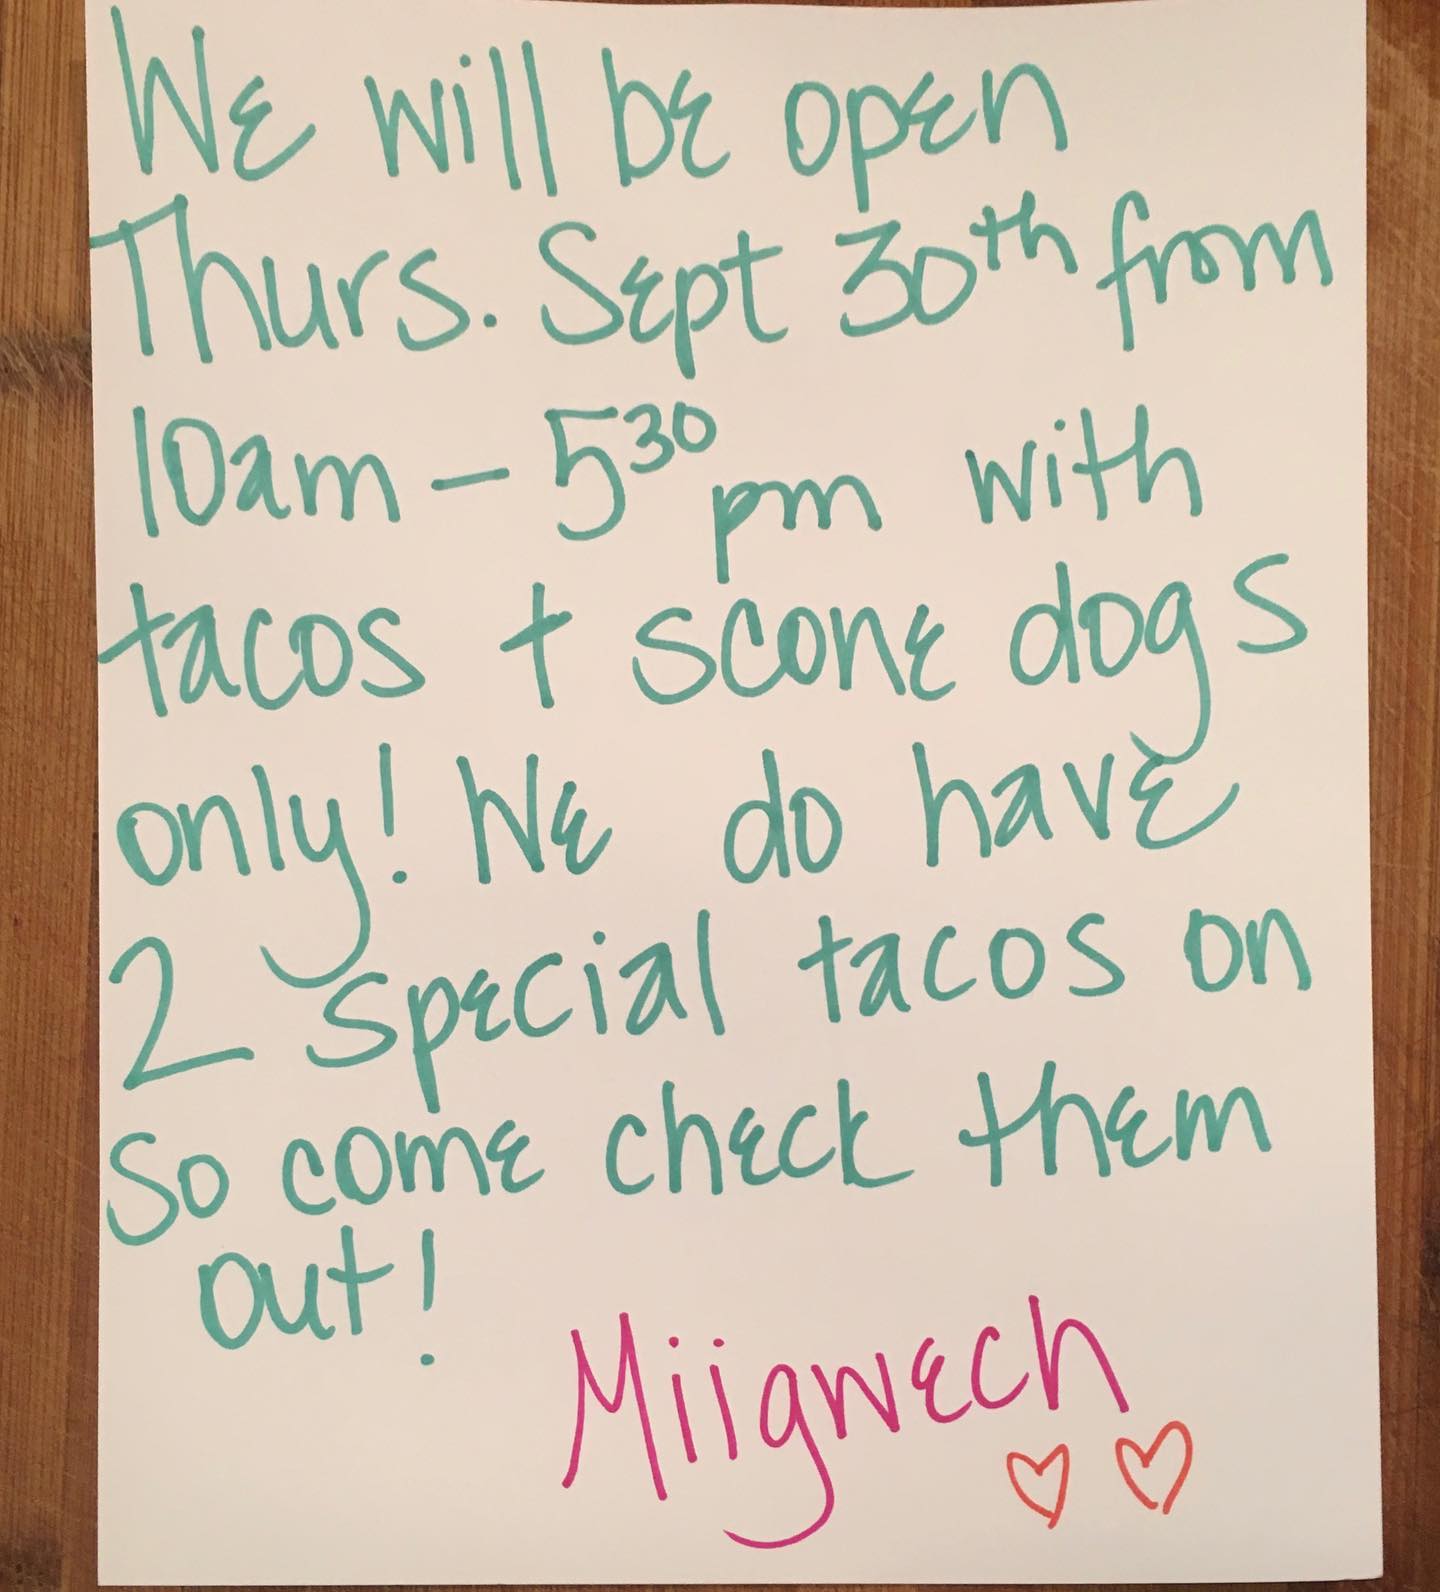 We will be open
Thurs. Sept 30th from
10am - 5³⁰ pm with
tacos + scone dogs
only! We do have
2 special tacos on
So come check them
out!
Miigwech